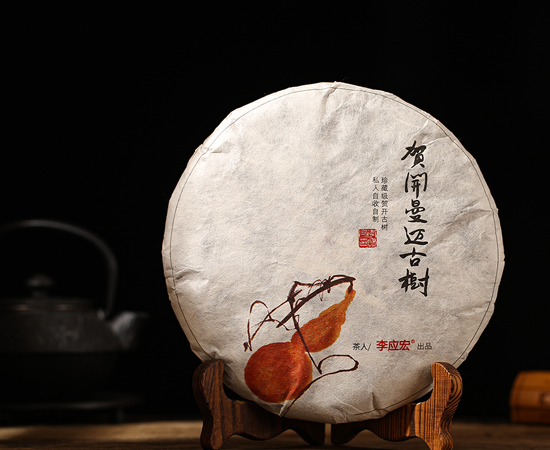 賀開曼迈古樹
珍藏级贺开古树
私人自收自制
茶人/ 李应宏® 出品